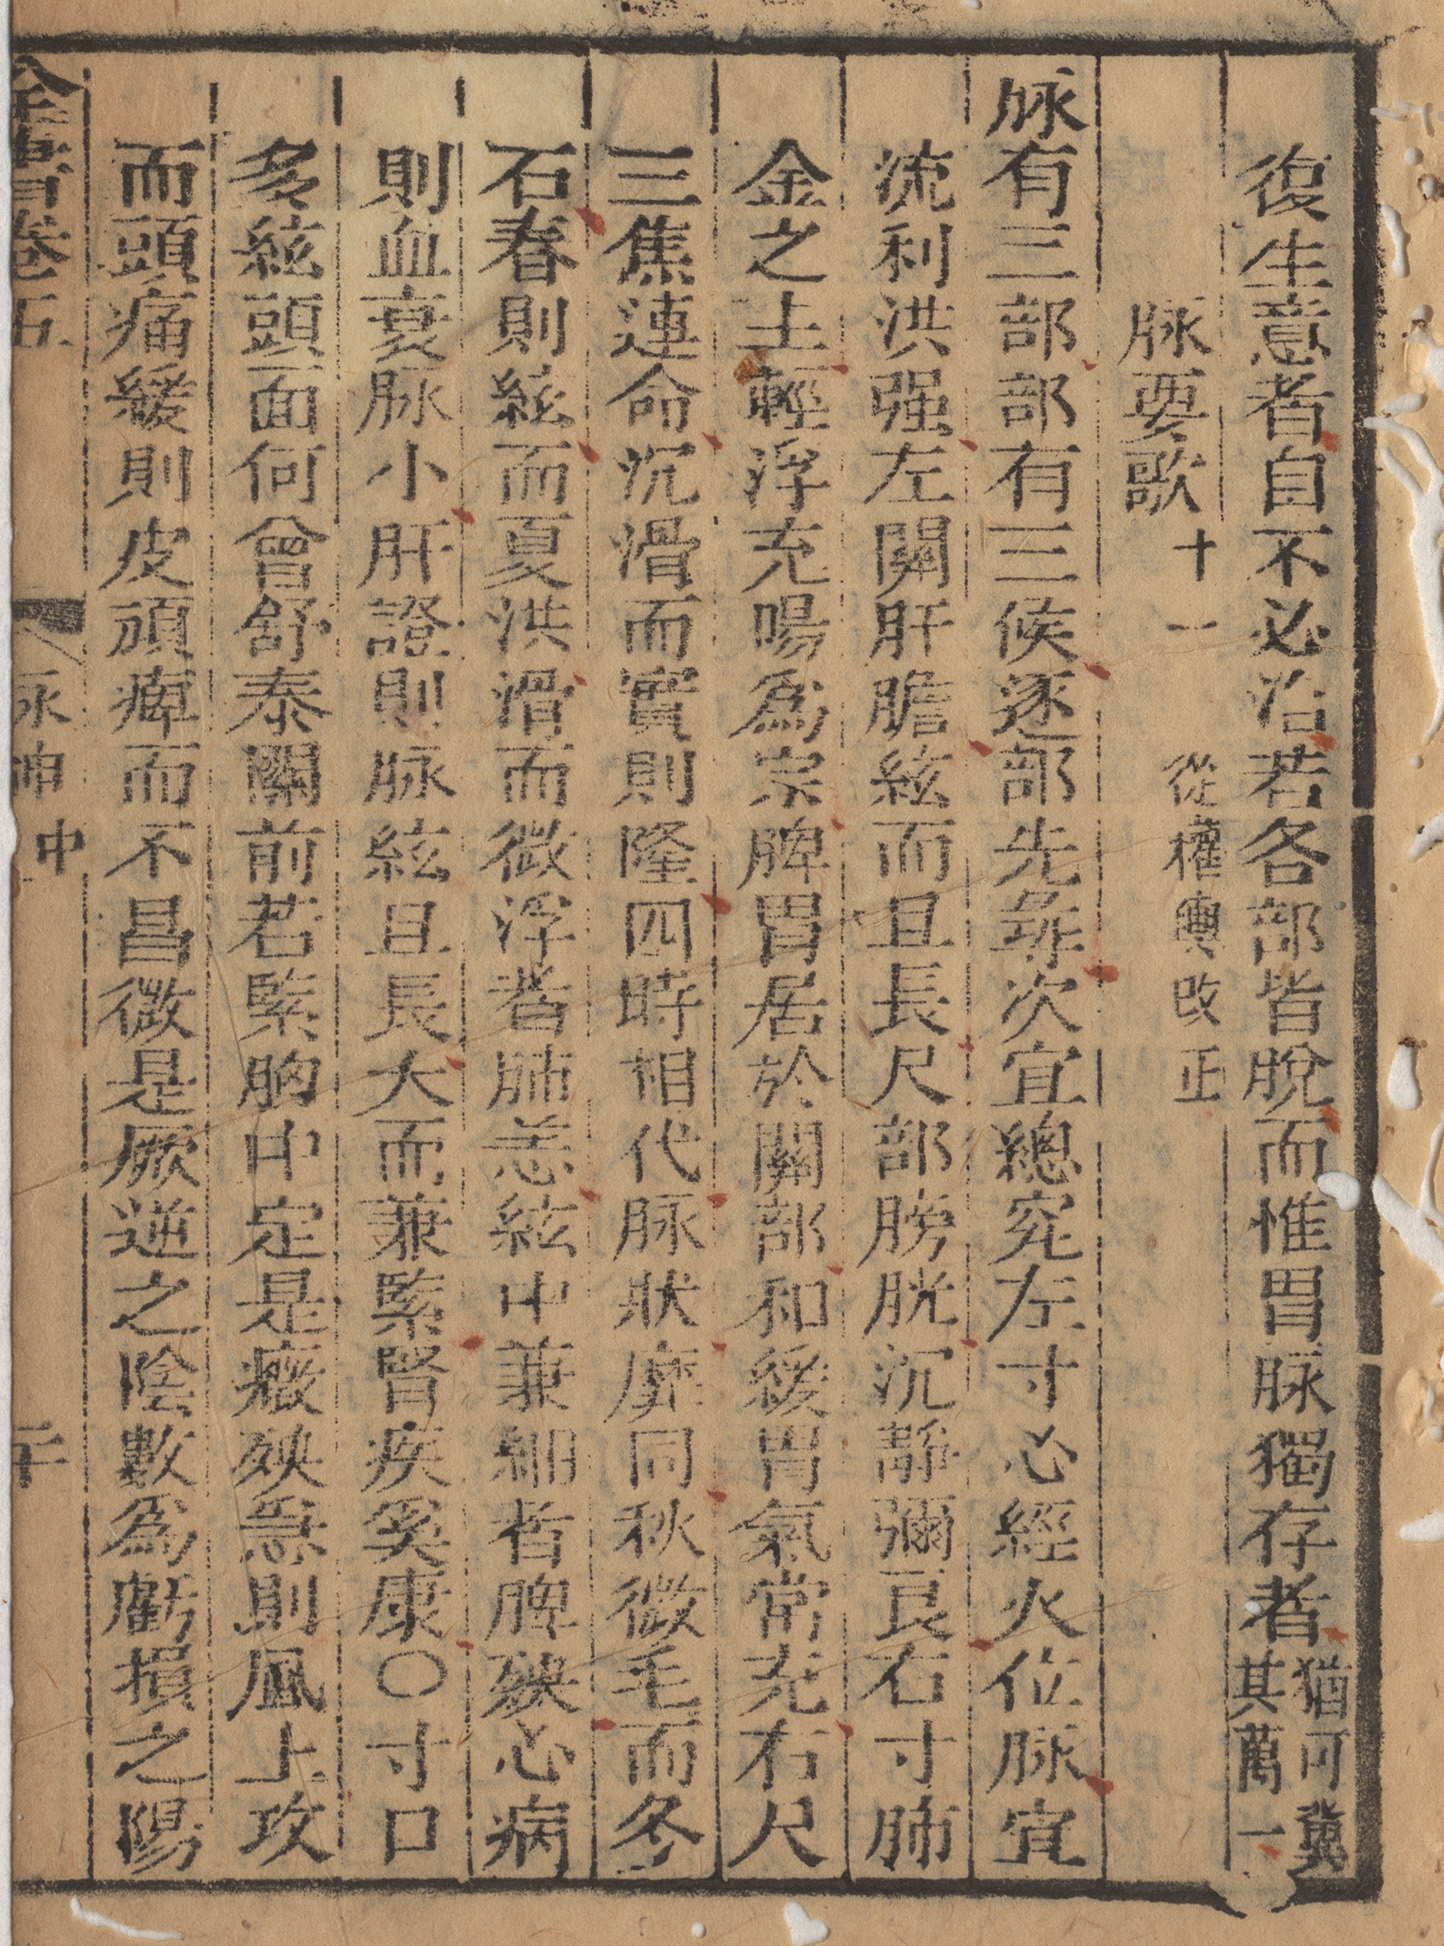 復生意者自不必治若各部皆脫而惟胃脉獨存者猶可冀其萬一
脉要歌 十一 從權輿改正
脉有三部部有三候逐部先尋次宜總究左寸心經火位脉宜
流利洪强左關肝膽絃而且長尺部膀胱沉靜彌良右寸肺
金之土輕浮充暢爲宗脾胃居於關部和緩胃氣常充右尺
三焦連命沉滑而實則隆四時相代脉狀靡同秋微毛而冬
石春則絃而夏洪滑而微浮者肺恙絃中兼細者脾殃心病
則血衰脉小肝證則脉絃且長大而兼緊腎疾奚康〇寸口
多絃頭面何曾舒泰關前若緊胸中定是癥殃急則風上攻
而頭痛緩則皮頑痺而不昌微是厥逆之陰數爲虧損之陽
全書卷五 脉神中 二十